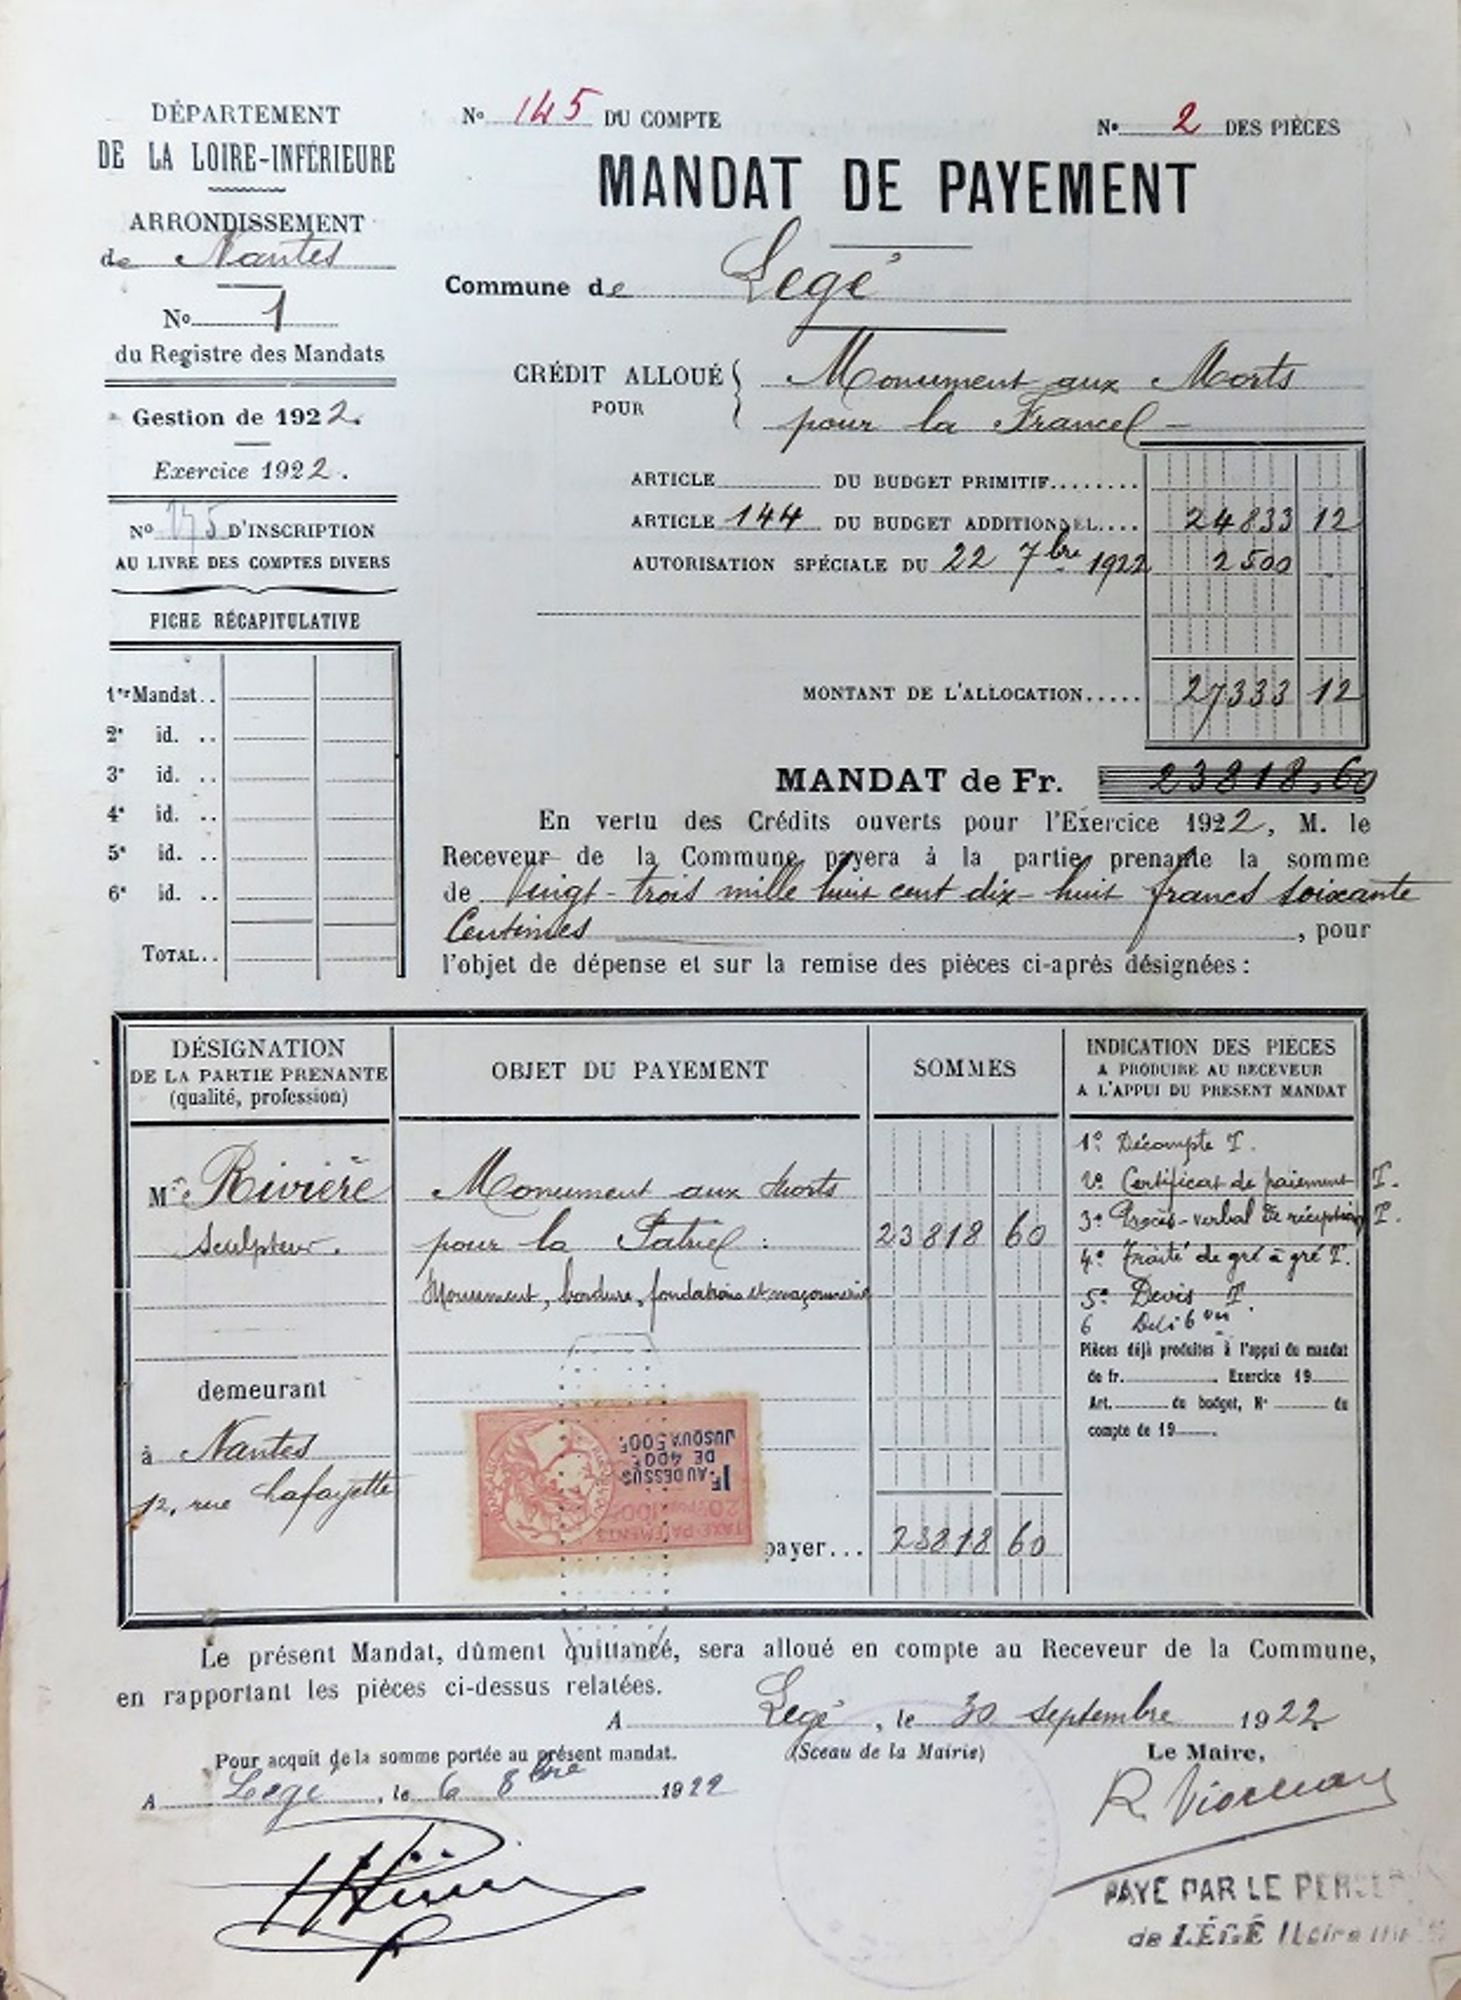 DÉPARTEMENT
DE LA LOIRE-INFÉRIEURE
ARRONDISSEMENT
de Nantes
No 1
du Registre des Mandats
Gestion de 1922.
Exercice 1922.
No 145 D'INSCRIPTION
AU LIVRE DES COMPTES DIVERS
FICHE RÉCAPITULATIVE
1er Mandat..
2e id. ..
3e id. ..
4e id. ..
5e id. ..
6e id. ..
TOTAL..
No 145 DU COMPTE
No 2 DES PIÈCES
MANDAT DE PAYEMENT
Commune de Legé
CRÉDIT ALLOUÉ
POUR
Monument aux Morts
pour la France
ARTICLE DU BUDGET PRIMITIF........
ARTICLE 144 DU BUDGET ADDITIONNEL.... 24833 12
AUTORISATION SPÉCIALE DU 22 7bre 1922 2500
MONTANT DE L'ALLOCATION..... 27333 12
MANDAT de Fr. 23818,60
En vertu des Crédits ouverts pour l'Exercice 1922, M. le
Receveur de la Commune payera à la partie prenante la somme
de Vingt-trois mille huit cent dix-huit francs soixante
Centimes, pour
l'objet de dépense et sur la remise des pièces ci-après désignées :
DÉSIGNATION
DE LA PARTIE PRENANTE
(qualité, profession)
Rivière
Sculpteur.
demeurant
à Nantes
12, rue Lafayette
OBJET DU PAYEMENT
Monument aux Morts
pour la Patrie :
Monument, bordure, fondations et maçonnerie
1F AU DESSUS
DE 400F
JUSQU'A 500F
TAXE-PAIEMENTS
payer...
SOMMES
23818 60
23818 60
INDICATION DES PIÈCES
A PRODUIRE AU RECEVEUR
A L'APPUI DU PRESENT MANDAT
1o Décompte T.
2o Certificat de paiement T.
3o Procès-verbal de réception T.
4o Traité de gré à gré T.
5o Devis T
6 Delibon
Pièces déjà produites à l'appui du mandat
de fr. Exercice 19
Art. du budget, No du
compte de 19 .
Le présent Mandat, dûment quittancé, sera alloué en compte au Receveur de la Commune,
en rapportant les pièces ci-dessus relatées.
A Legé, le 30 septembre 1922
Pour acquit de la somme portée au présent mandat.
(Sceau de la Mairie)
Le Maire,
A Legé, le 6 8bre 1922
PAYE PAR LE
de LÉGÉ